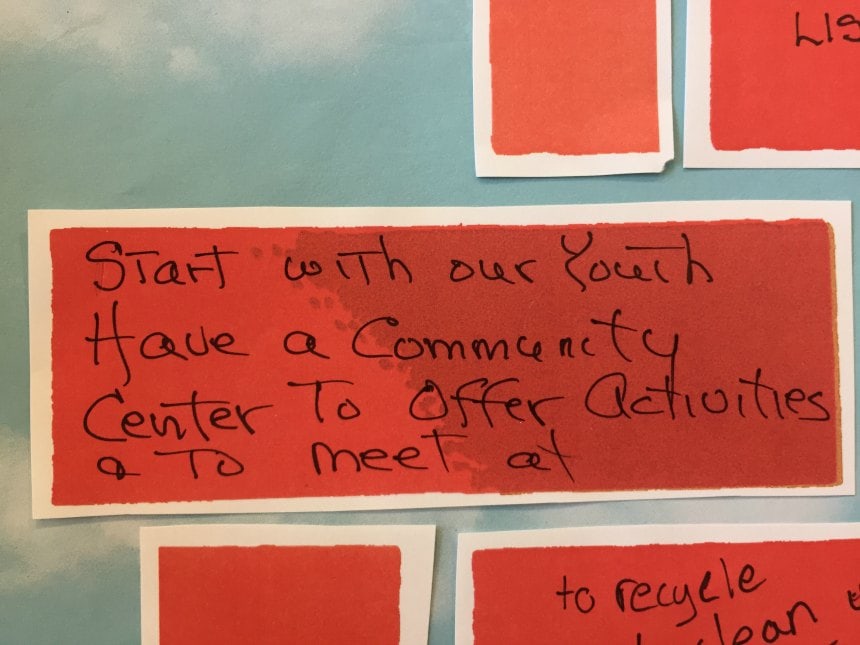 Start with our Youth
Have a Community
Center To Offer Activities
a To meet at
to recycle
clean